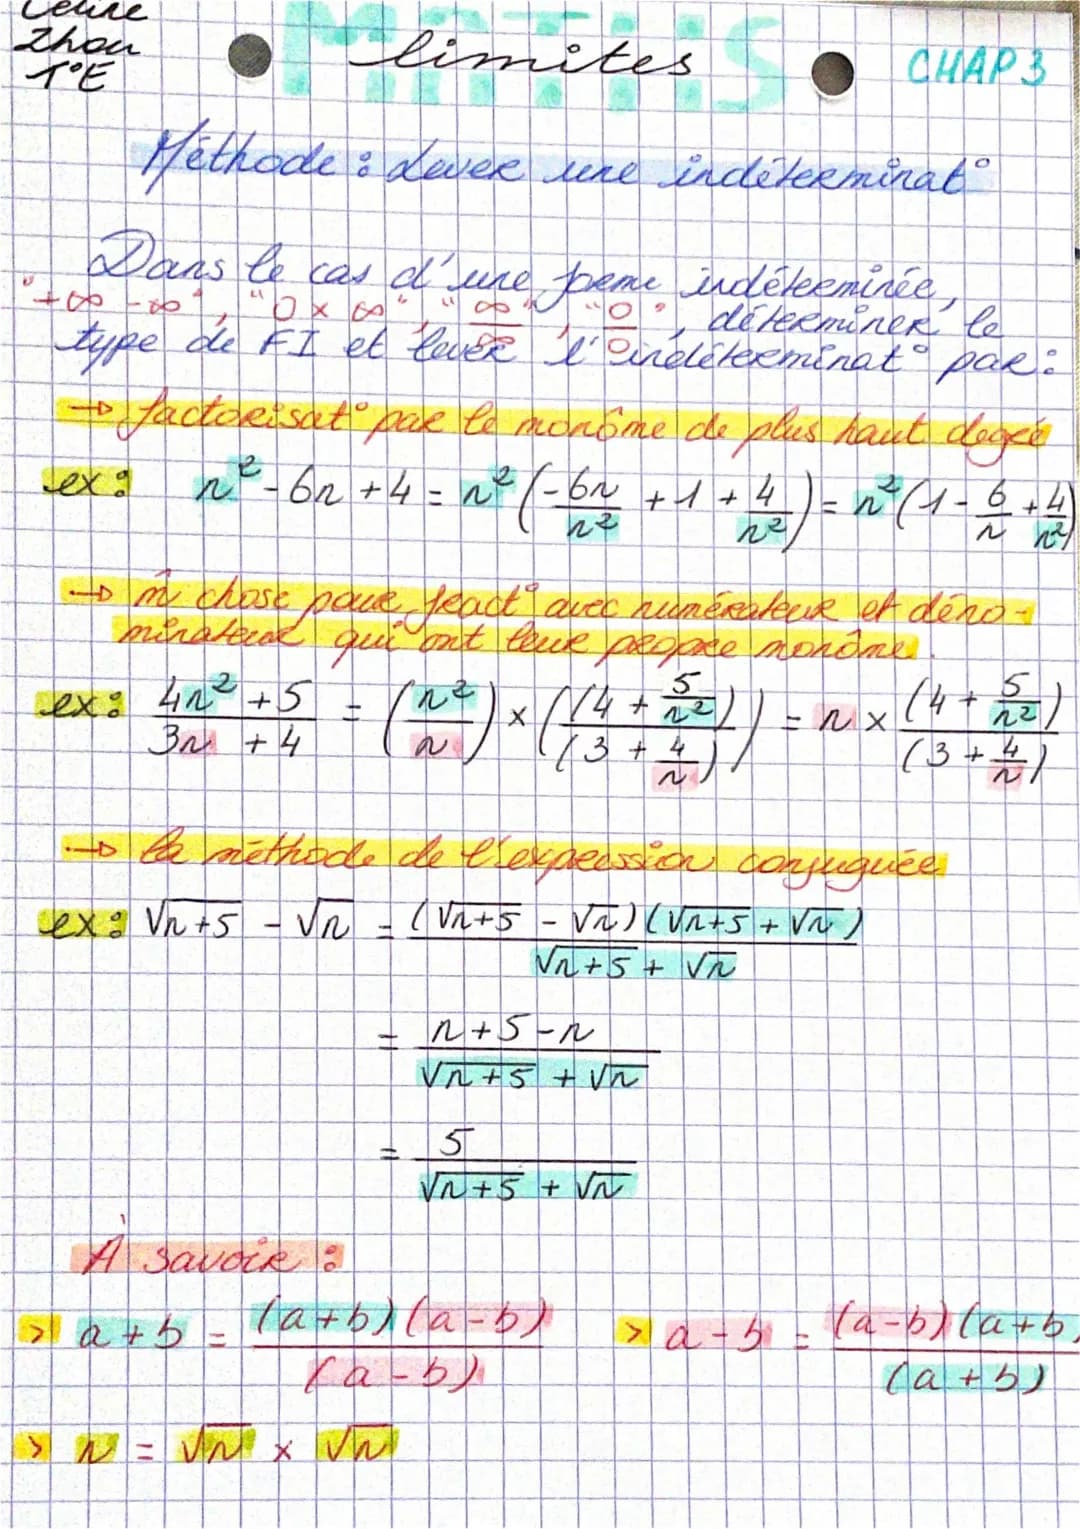 Zhou
T°E
MATHS
limites
CHAP 3
Méthode : Lever une indéterminat°
Dans le cas d'une forme indéterminée,
"+∞ -∞", "0 × ∞", "∞/∞", "0/0", déterminer le
type de FI et lever l'indéterminat° par :
→ factorisat° par le monôme de plus haut degré
ex : n² - 6n + 4 = n² (-6n/n² + 1 + 4/n²) = n² (1 - 6/n + 4/n²)
→ m̂ chose pour fract° avec numérateur et déno-
minateur qui ont leur propre monôme.
ex : (4n² + 5)/(3n + 4) = (n²/n) × ((4 + 5/n²)/(3 + 4/n)) = n × (4 + 5/n²)/(3 + 4/n)
→ la méthode de l'expression conjuguée
ex : √n+5 - √n = (√n+5 - √n)(√n+5 + √n)/(√n+5 + √n)
= (n + 5 - n)/(√n+5 + √n)
= 5/(√n+5 + √n)
À savoir :
> a + b = (a+b)(a-b)/(a-b) > a - b = (a-b)(a+b)/(a+b)
> n = √n × √n